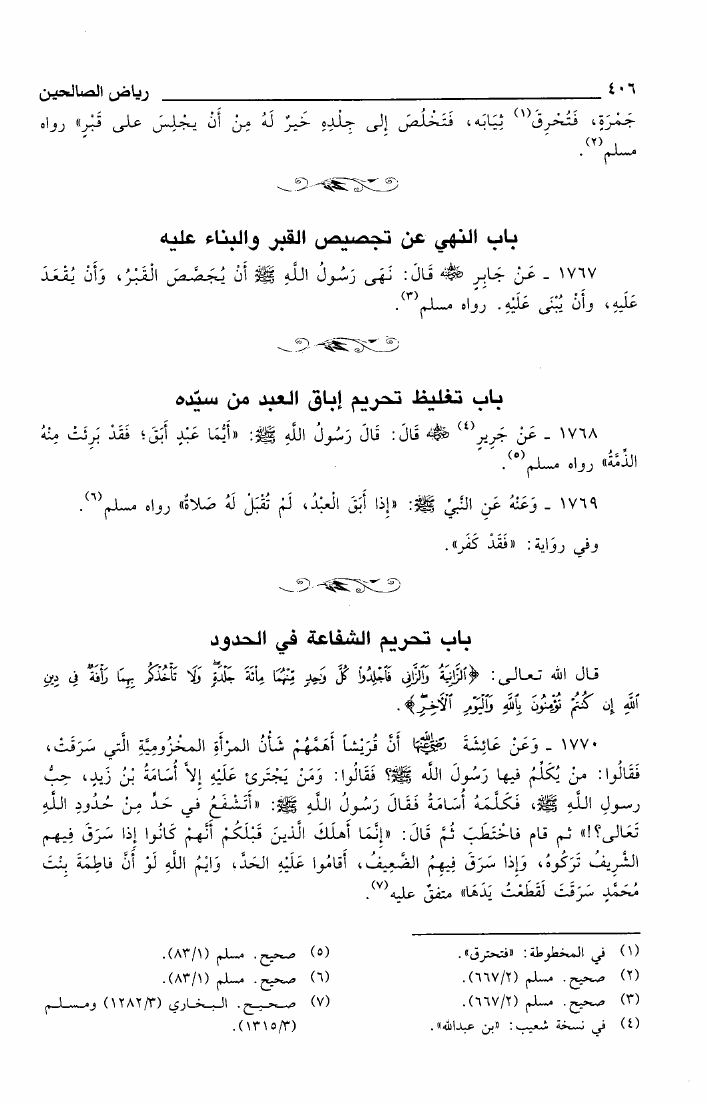 ٤٠٦ رياض الصالحين
جَمْرَةٍ، فَتُحْرِقَ(١) ثِيَابَه، فَتَخْلُصَ إِلى جِلْدِهِ خَيرٌ لَهُ مِنْ أَنْ يجْلِسَ على قَبْرٍ» رواه
مسلم(٢).
باب النهي عن تجصيص القبر والبناء عليه
١٧٦٧ ـ عَنْ جَابِرٍ ﷺ قَالَ: نَهَى رَسُولُ اللَّهِ ﷺ أَنْ يُجَصَّصَ الْقَبْرُ، وَأَنْ يُقْعَدَ
عَلَيهِ، وأَنْ يُبْنَى عَلَيْهِ. رواه مسلم(٣).
باب تغليظ تحريم إباق العبد من سيّده
١٧٦٨ ـ عَنْ جَرِيرٍ(٤) رضي الله عنه قَالَ: قَالَ رَسُولُ اللَّهِ ﷺ: «أَيُّمَا عَبْدٍ أَبَقَ؛ فَقَدْ بَرِئَتْ مِنْهُ
الذِّمَّةُ» رواه مسلم(٥).
١٧٦٩ ـ وَعَنْهُ عَنِ النَّبِيِّ ﷺ: «إِذا أَبَقَ الْعَبْدُ، لَمْ تُقْبَلْ لَهُ صَلاةٌ» رواه مسلم(٦).
وفي روَاية: «فَقَدْ كَفَر».
باب تحريم الشفاعة في الحدود
قال الله تعالى: ﴿ٱلزَّانِيَةُ وَٱلزَّانِي فَٱجْلِدُوا۟ كُلَّ وَٰحِدٍ مِّنْهُمَا مِا۟ئَةَ جَلْدَةٍ ۖ وَلَا تَأْخُذْكُم بِهِمَا رَأْفَةٌ فِى دِينِ
ٱللَّهِ إِن كُنتُمْ تُؤْمِنُونَ بِٱللَّهِ وَٱلْيَوْمِ ٱلْءَاخِرِ ۖ﴾.
١٧٧٠ ـ وَعَنْ عَائِشَةَ رضي الله عنها أَنَّ قُرَيْشاً أَهَمَّهُمْ شَأْنُ المرْأَةِ المخْزُومِيَّةِ الَّتي سَرَقَتْ،
فَقَالُوا: منْ يُكَلِّمُ فيها رَسُولَ الله ﷺ؟ فَقَالُوا: وَمَنْ يَجْتَرئ عَلَيْهِ إِلاَّ أُسَامَةُ بْنُ زَيدٍ، حِبُّ
رسولِ اللَّهِ ﷺ، فَكَلَّمَهُ أُسَامَةُ فَقَالَ رَسُولُ اللَّهِ ﷺ: «أَتَشْفَعُ في حَدٍّ مِنْ حُدُودِ اللَّهِ
تَعَالى؟!» ثم قام فاخْتَطَبَ ثُمَّ قَالَ: «إِنَّمَا أَهلَكَ الَّذينَ قَبْلَكُمْ أَنَّهمْ كَانُوا إِذا سَرَقَ فِيهم
الشَّرِيفُ تَرَكُوهُ، وَإِذا سَرَقَ فِيهِمُ الضَّعِيفُ، أَقامُوا عَلَيْهِ الحَدَّ، وَايْمُ اللَّهِ لَوْ أَنَّ فاطِمَةَ بِنْتَ
مُحَمَّدٍ سَرَقَتْ لَقَطَعْتُ يَدَهَا» متفقٌ عليه(٧).
(١) في المخطوطة: «فتحترق».
(٢) صحيح. مسلم (٦٦٧/٢).
(٣) صحيح. مسلم (٦٦٧/٢).
(٤) في نسخة شعيب: «بن عبدالله».
(٥) صحيح. مسلم (٨٣/١).
(٦) صحيح. مسلم (٨٣/١).
(٧) صحيح. البخاري (١٢٨٢/٣) ومسلم
(١٣١٥/٣).